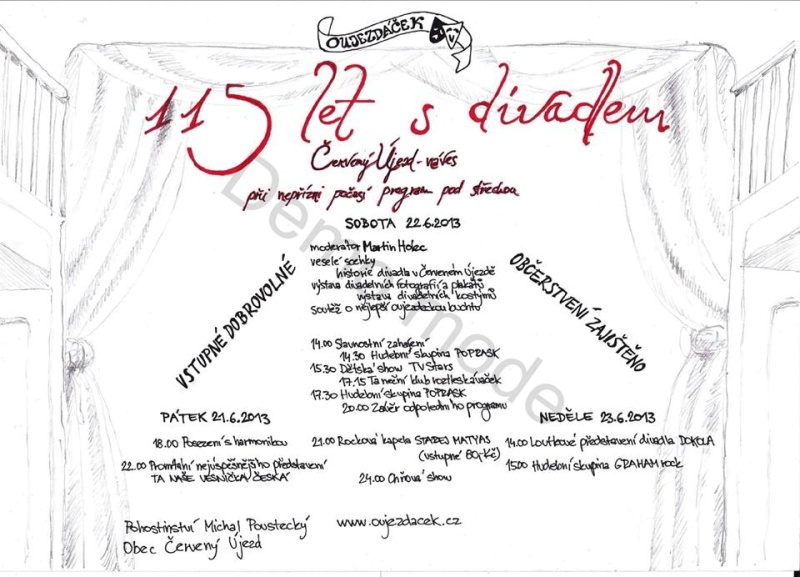 OUJEZDÁČEK
115 let s divadlem
Červený Újezd - náves
při nepřízni počasí program pod střechou
SOBOTA 22.6.2013
moderátor Martin Holec
veselé sochky
historie divadla v Červeném Újezdě
výstava divadelních fotografií a plakátů
výstava divadelních kostýmů
Soutěž o nejlepší oujezdeckou buchtu
VSTUPNÉ DOBROVOLNÉ
OBČERSTVENÍ ZAJIŠTĚNO
14.00 Slavnostní zahájení
14.30 Hudební skupina POPRASK
15.30 Dětská show TV Stars
17.15 Taneční klub roztleskávaček
17.30 Hudební skupina POPRASK
20.00 Závěr odpoledního programu
PÁTEK 21.6.2013
18.00 Posezení s harmonikou
22.00 Promítání nejúspěšnějšího představení
TA NAŠE VESNIČKA ČESKÁ
21.00 Rocková kapela STAREJ MATYAS
(vstupné 80,-Kč)
24.00 Ohňová show
NEDĚLE 23.6.2013
14.00 Loutkové představení divadla DOKOLA
15.00 Hudební skupina GRAHAM rock
Pohostinství Michal Poustecký
Obec Červený Újezd
www.oujezdacek.cz
Demo mode